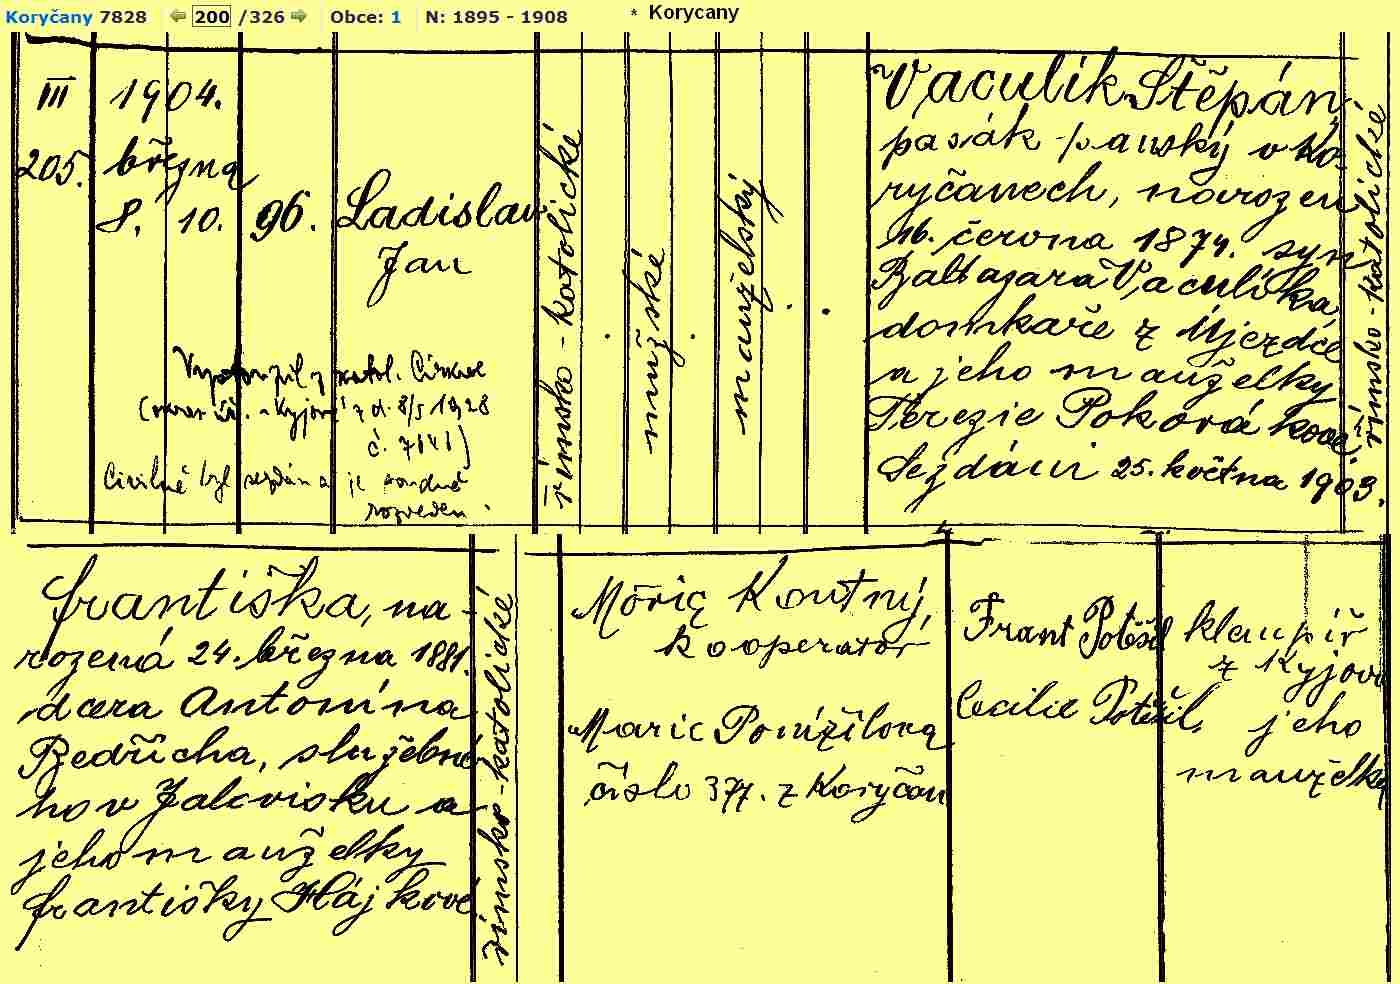 Koryčany 7828 200 /326 Obce: 1 N: 1895 - 1908 * Korycany
III
205.
1904.
března
8. 10.
96.
Ladislav
Jan
Vystoupil z katol. Církve
z d. 8/5 1928
č. 7141)
Civilně byl sezdán a je soudně
rozveden.
římsko-katolické
mužské
manželský
Vaculík Štěpán,
pasák panský v Ko-
ryčanech, narozen
16. června 1874. syn
Baltazara Vaculíka
domkaře z Újezdce
a jeho manželky
Terezie Pokorákové.
Sezdáni 25. května 1903.
římsko-katolické
Františka, na-
rozená 24. března 1881.
dcera Antonína
Bedřicha, služebné-
ho v Jalovisku a
jeho manželky
Františky Hájkové
římsko-katolické
Móric Koutný,
kooperator
Marie Ponížilova
číslo 377. z Koryčan
Frant Potěšil klempíř
z Kyjova
Cecilie Potěšil, jeho
manželka